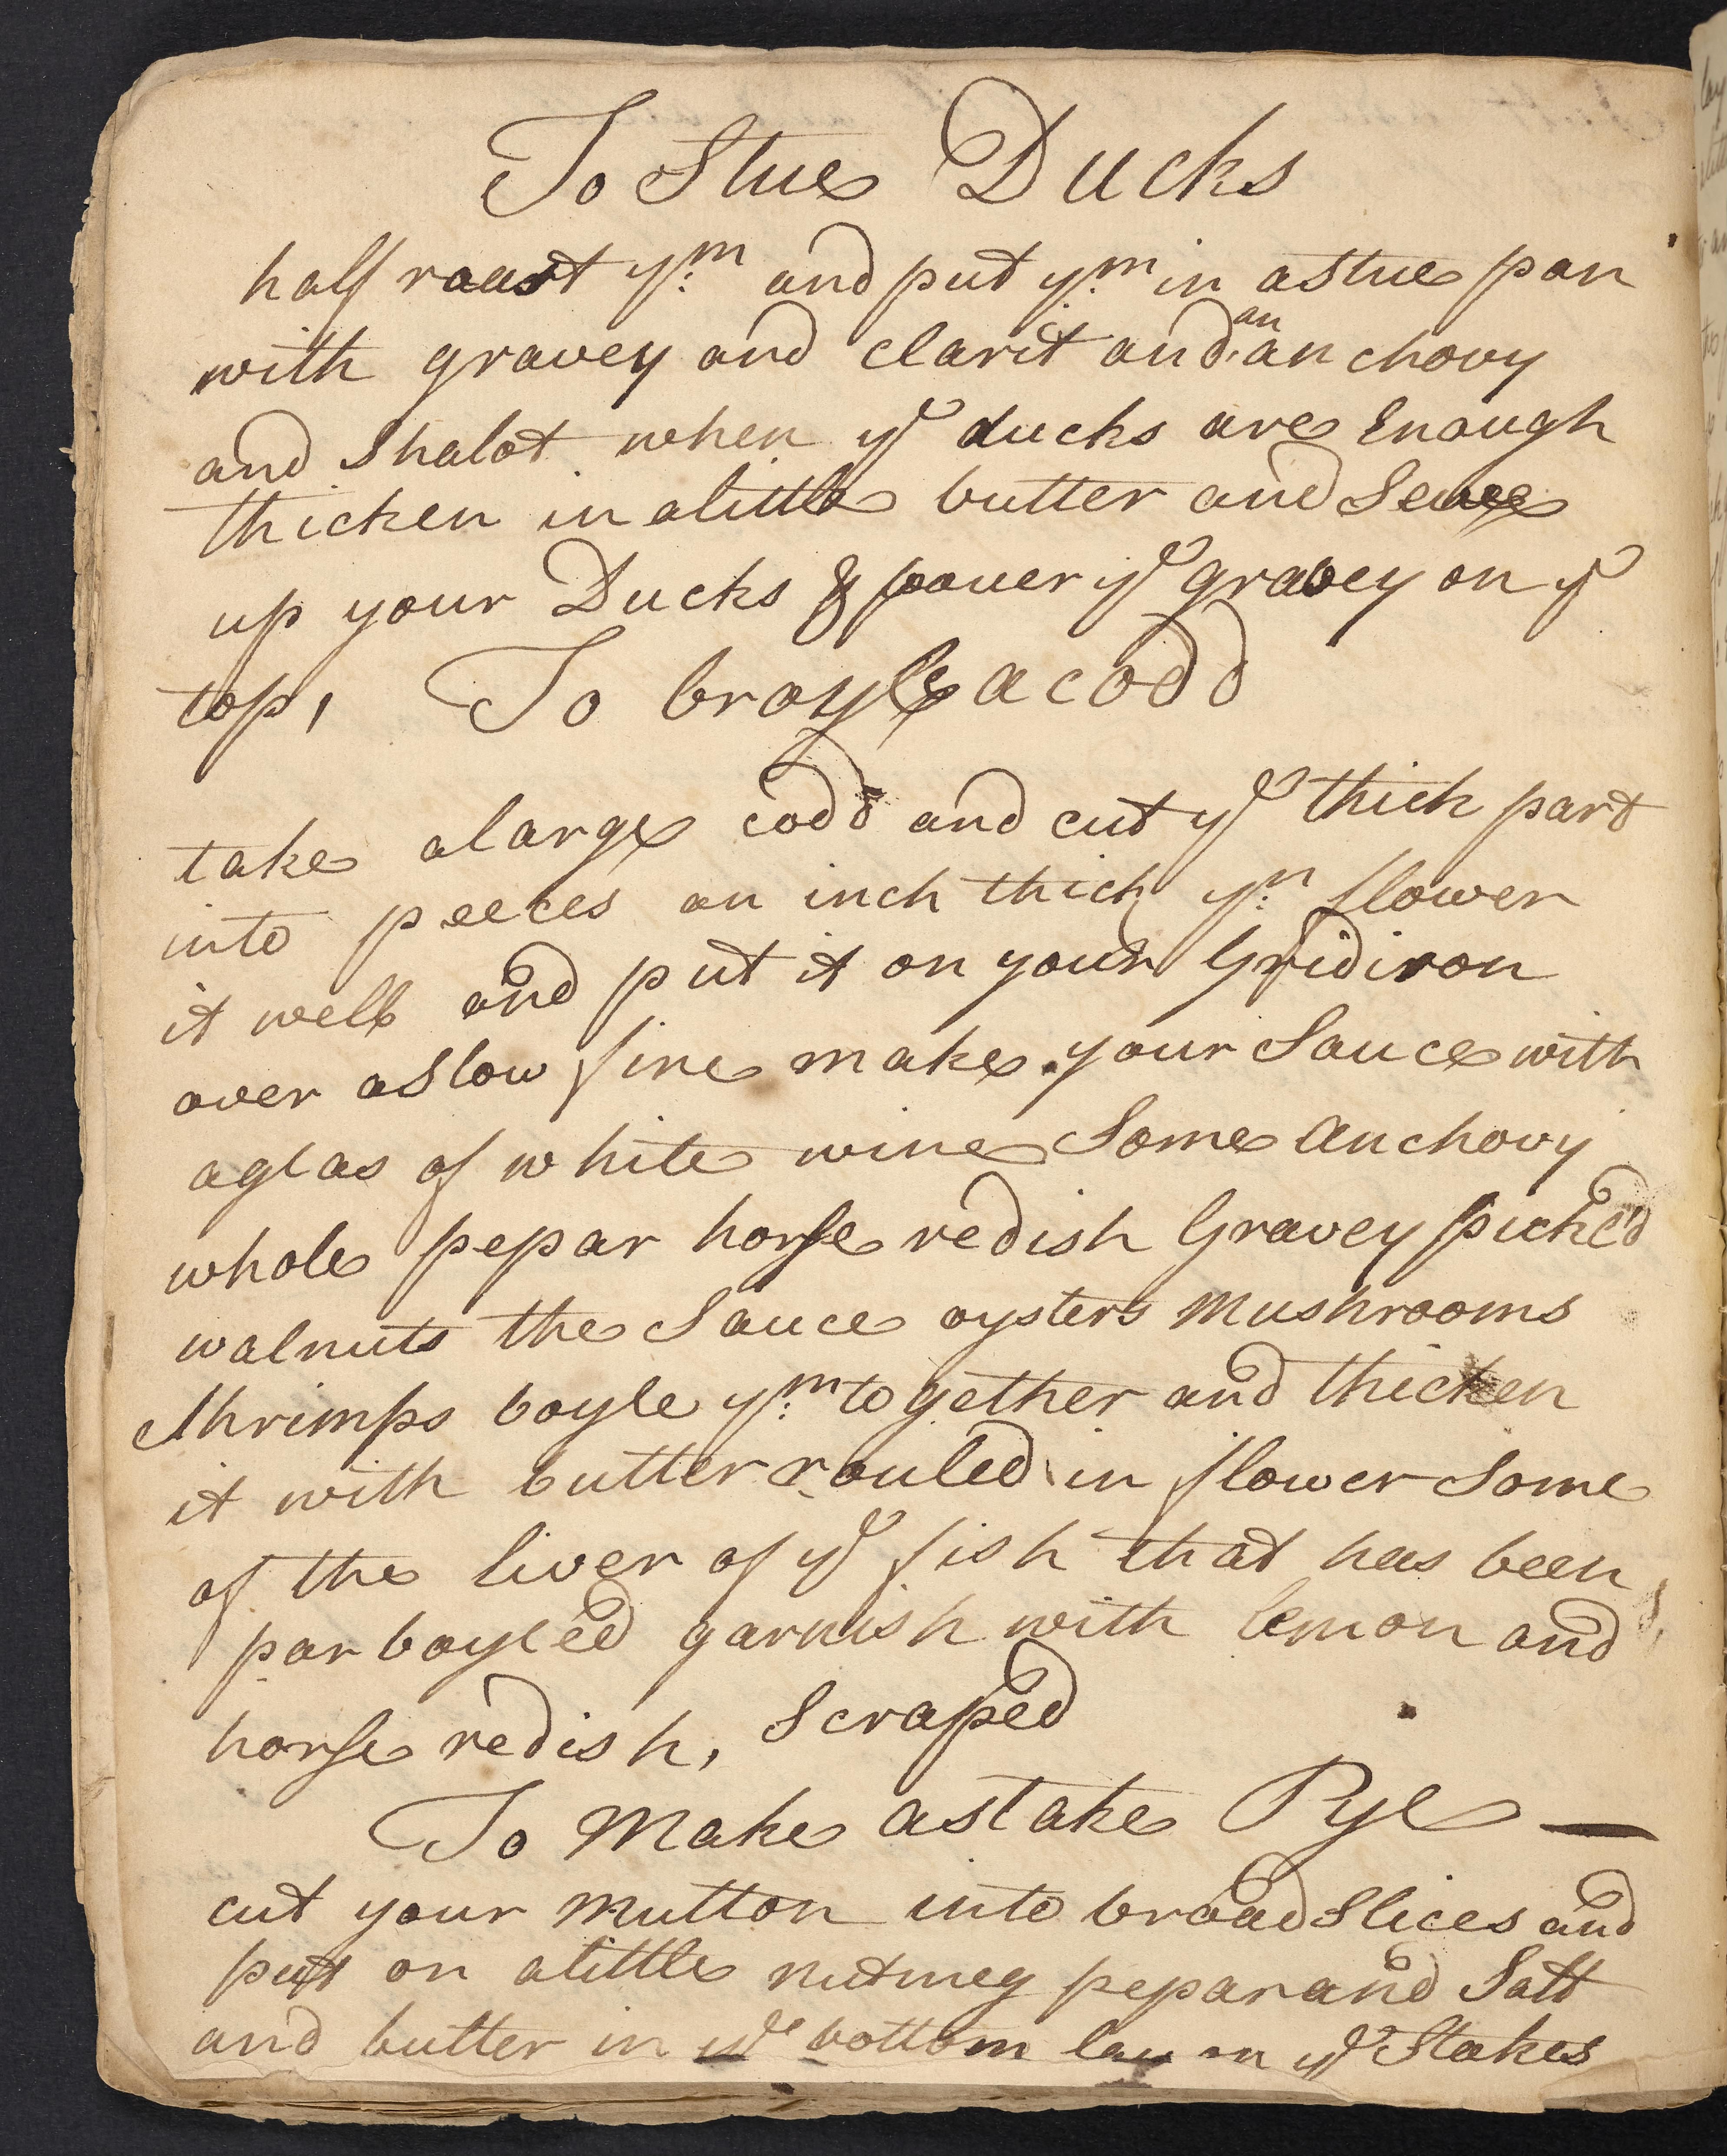 To Stue Ducks
half roast ym and put ym in a stue pan
with gravey and clarit and an anchovy
and Shalot when ye ducks are Enough
thicken in a little butter and Serve
up your Ducks & pouer ye gravey on ye
top, To broyle a codd
take a large codd and cut ye thick part
into peeces an inch thick yn flower
it well and put it on your Gridiron
over a Slow fire make your Sauce with
a glas of white wine Some Anchovy
whole pepar horse redish Gravey picked
walnuts the Sauce oysters Mushrooms
Shrimps boyle ym together and thicken
it with butter rouled in flower Some
of the liver of ye fish that has been
par boyled garnish with lemon and
horse redish, Scraped
To Make a stake Pye —
cut your Mutton into broad Slices and
put on a little nutmeg pepar and Salt
and butter in ye bottom lay in ye Stakes